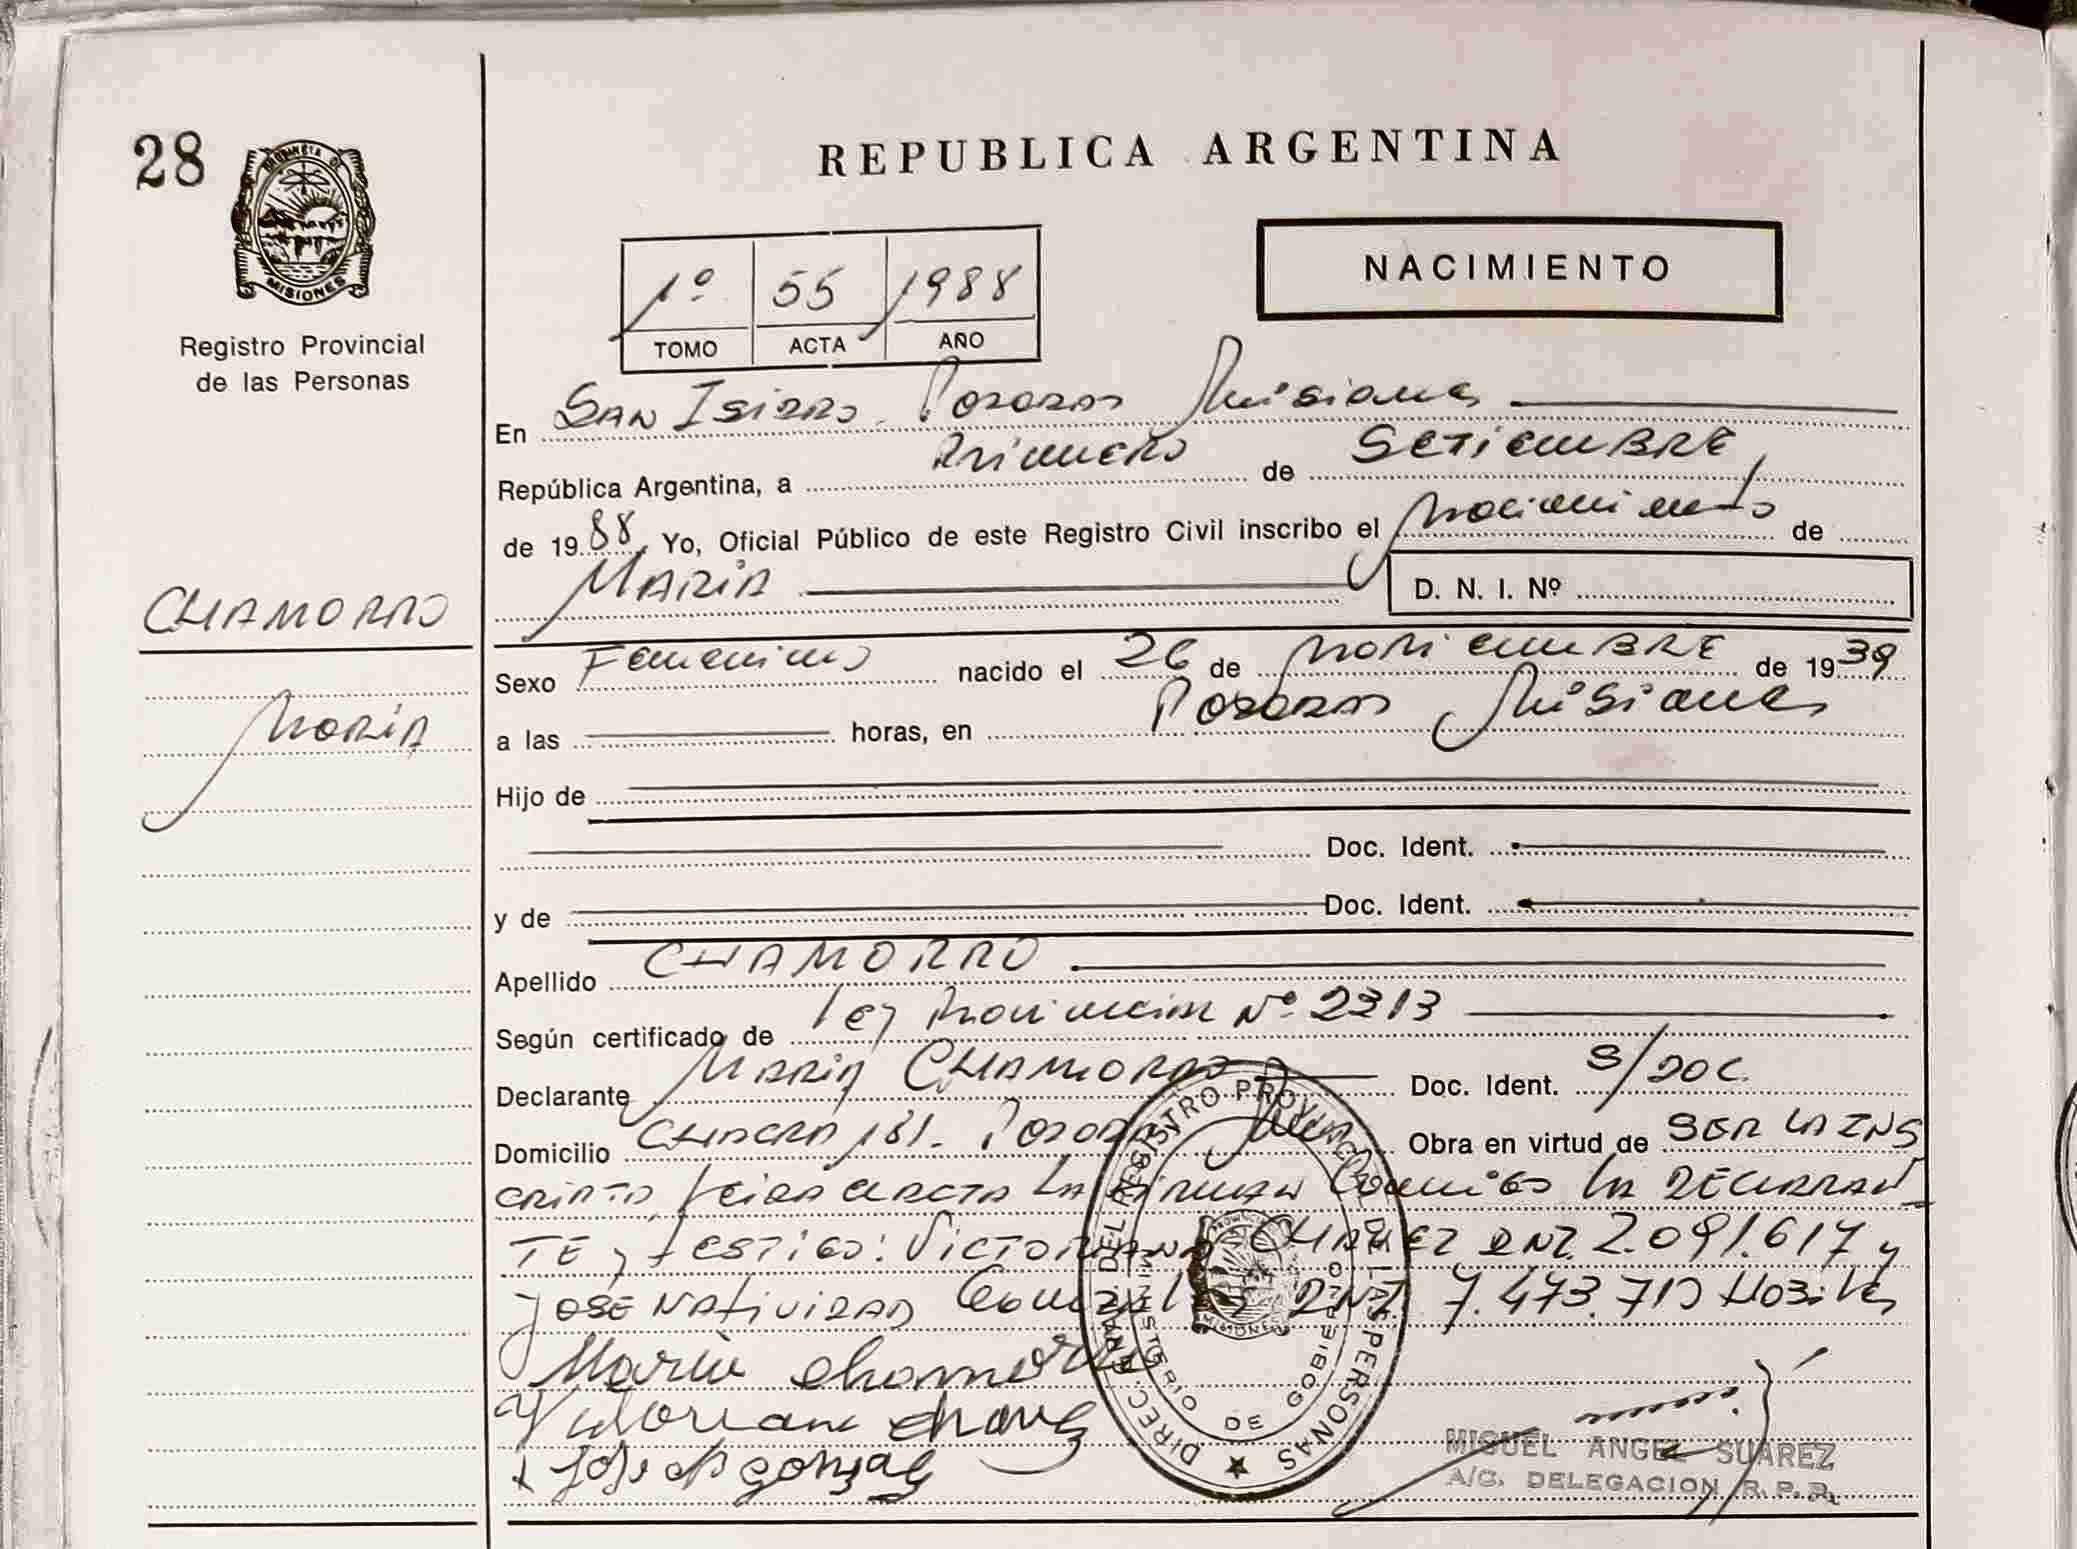 28
PROVINCIA DE
MISIONES
Registro Provincial
de las Personas
REPUBLICA ARGENTINA
1º 55 1988
TOMO ACTA AÑO
NACIMIENTO
En San Isidro. Posadas Misiones
República Argentina, a Primero de Setiembre,
de 1988, Yo, Oficial Público de este Registro Civil inscribo el Nacimiento de
María
D. N. I. Nº
CHAMORRO
María
Sexo Femenino nacido el 26 de Noviembre de 1939
a las horas, en Posadas Misiones
Hijo de
Doc. Ident.
y de Doc. Ident.
Apellido CHAMORRO
Según certificado de Ley Provincial Nº 2313
Declarante María Chamorro Doc. Ident. S/DOC.
Domicilio Chacra 181. Posadas Obra en virtud de SER LA INS
CRIPTA, leida el acta la firman conmigo la DECLARAN
TE y testigos: Victoriano Chavez DNI. 2.091.617 y
José Natividad Gonzalez DNI. 7.473.710 Hábiles
María Chamorro
Victoriano Chavez
José N Gonzalez
DIREC. GRAL. DEL REGISTRO PROVINCIAL DE LAS PERSONAS
MINISTERIO DE GOBIERNO
PROVINCIA
MISIONES
MIGUEL ANGEL SUAREZ
A/C. DELEGACION R. P. P.